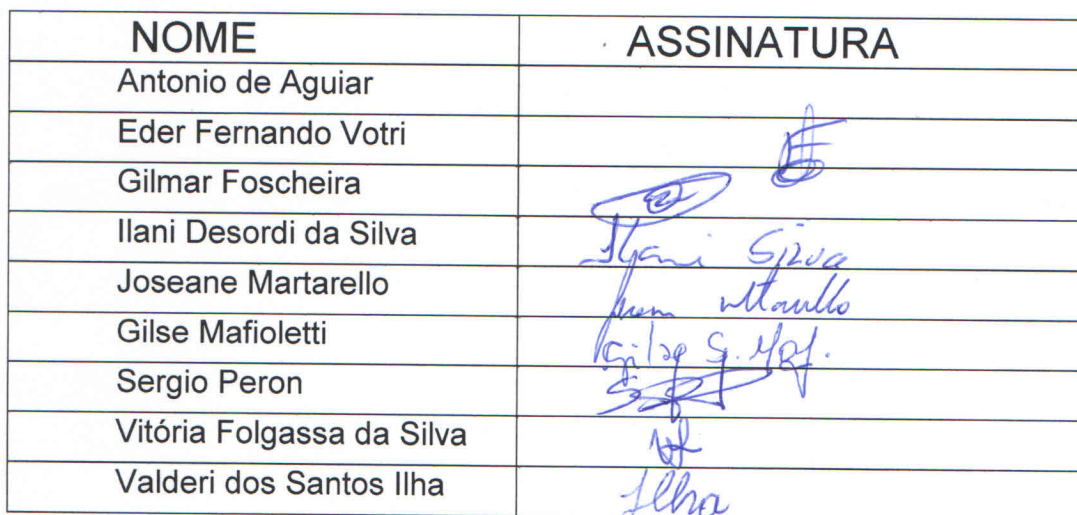 NOME ASSINATURA
Antonio de Aguiar
Eder Fernando Votri
Gilmar Foscheira
Ilani Desordi da Silva Ilani Silva
Joseane Martarello
Gilse Mafioletti
Sergio Peron
Vitória Folgassa da Silva
Valderi dos Santos Ilha Ilha